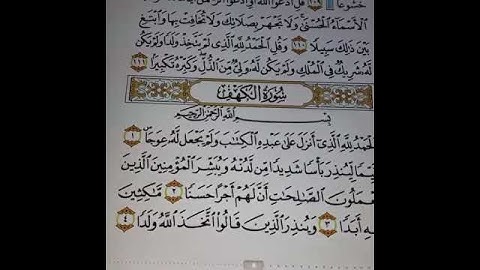 خُشُوعًا ۩ ١٠٩ قُلِ ادْعُوا اللَّهَ أَوِ ادْعُوا الرَّحْمَٰنَ
الْأَسْمَاءُ الْحُسْنَىٰ وَلَا تَجْهَرْ بِصَلَاتِكَ وَلَا تُخَافِتْ بِهَا وَابْتَغِ
بَيْنَ ذَٰلِكَ سَبِيلًا ١١٠ وَقُلِ الْحَمْدُ لِلَّهِ الَّذِي لَمْ يَتَّخِذْ وَلَدًا وَلَمْ يَكُن
لَّهُ شَرِيكٌ فِي الْمُلْكِ وَلَمْ يَكُن لَّهُ وَلِيٌّ مِّنَ الذُّلِّ وَكَبِّرْهُ تَكْبِيرًا ١١١
سُورَةُ الْكَهْفِ
بِسْمِ اللَّهِ الرَّحْمَٰنِ الرَّحِيمِ
الْحَمْدُ لِلَّهِ الَّذِي أَنزَلَ عَلَىٰ عَبْدِهِ الْكِتَابَ وَلَمْ يَجْعَل لَّهُ عِوَجًا ۜ ١
قَيِّمًا لِّيُنذِرَ بَأْسًا شَدِيدًا مِّن لَّدُنْهُ وَيُبَشِّرَ الْمُؤْمِنِينَ الَّذِينَ
يَعْمَلُونَ الصَّالِحَاتِ أَنَّ لَهُمْ أَجْرًا حَسَنًا ٢ مَّاكِثِينَ
فِيهِ أَبَدًا ٣ وَيُنذِرَ الَّذِينَ قَالُوا اتَّخَذَ اللَّهُ وَلَدًا ٤